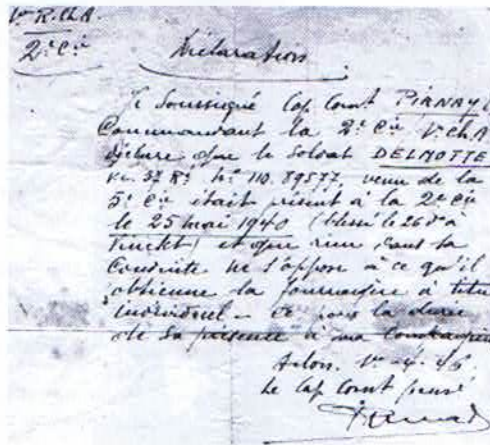 1er R.Ch.A.
2e Cie
Déclaration
Je soussigné Cap Comt PIRNAY
Commandant la 2e Cie 1er Ch A
déclare que le soldat DELMOTTE
Mi. 37 Rt No 110.89577 venu de la
5e Cie était présent à la 2e Cie
le 25 mai 1940 (blessé le 26 do à
Vinckt) et que rien dans sa
Conduite ne s'oppose à ce qu'il
obtienne la fourragère à titre
individuel – ce pour la durée
de sa présence à ma Compagnie
Arlon, 1er -4- 46.
Le Cap Comt